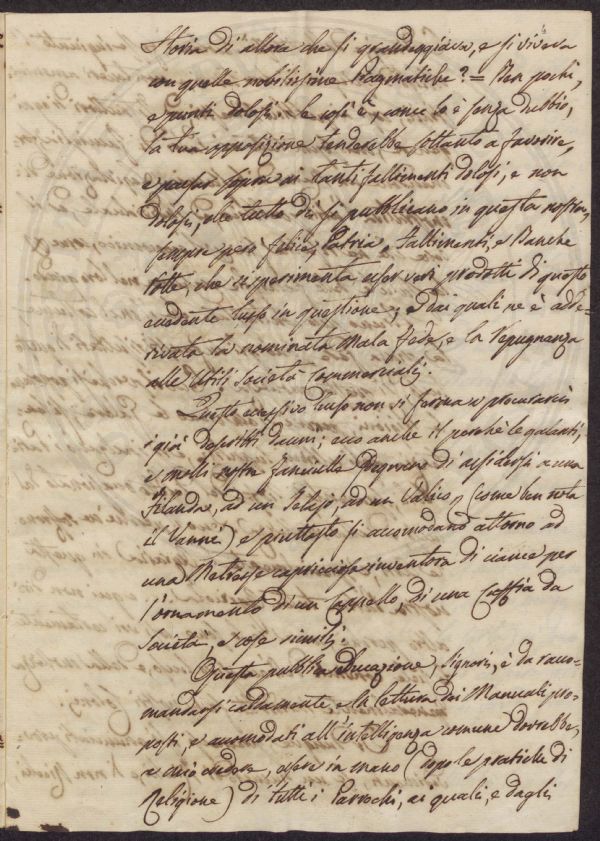 Storia di allora che si grandeggiava, e si viveva
con quelle nobilissime Pragmatiche? = Ben pochi,
e quinti dolosi: le così è, come lo è senza dubbio,
la tua opposizione tenderebbe soltanto a favorire,
e passar sopra ai tanti fallimenti dolosi, e non
dolosi, che tutto dì si pubblicano in questa nostra,
sempre però felice, Patria. Fallimenti, e Banche
rotte, che si sperimenta esser veri prodotti di questo
eccedente lusso in questione; Dai quali ne è adde-
rivata la nominata Mala fede, e la repugnanza
alle utili Società Commerciali.
Questo eccessivo lusso non si ferma a procurarci
i già descritti danni; ecco anche il perchè le galanti,
e molli nostre fanciulle sdegnano di assidersi a una
Filanda, ad un Telajo, ad un Valico, (come ben nota
il Vanni) e piuttosto si accomodano attorno ad
una Metresse capricciosa inventora di ciance per
l'ornamento di un Cappello, di una Cuffia da
Società, e cose simili.
Questa pubblica educazione, Signori, è da racco-
mandarsi caldamente, e la lettura dei Manuali pro-
posti, e accomodati all'intelligenza comune dovrebbe,
a mio credere, essere in mano (dopo le pratiche di
Religione) di tutti i Parrochi, ai quali, e dagli